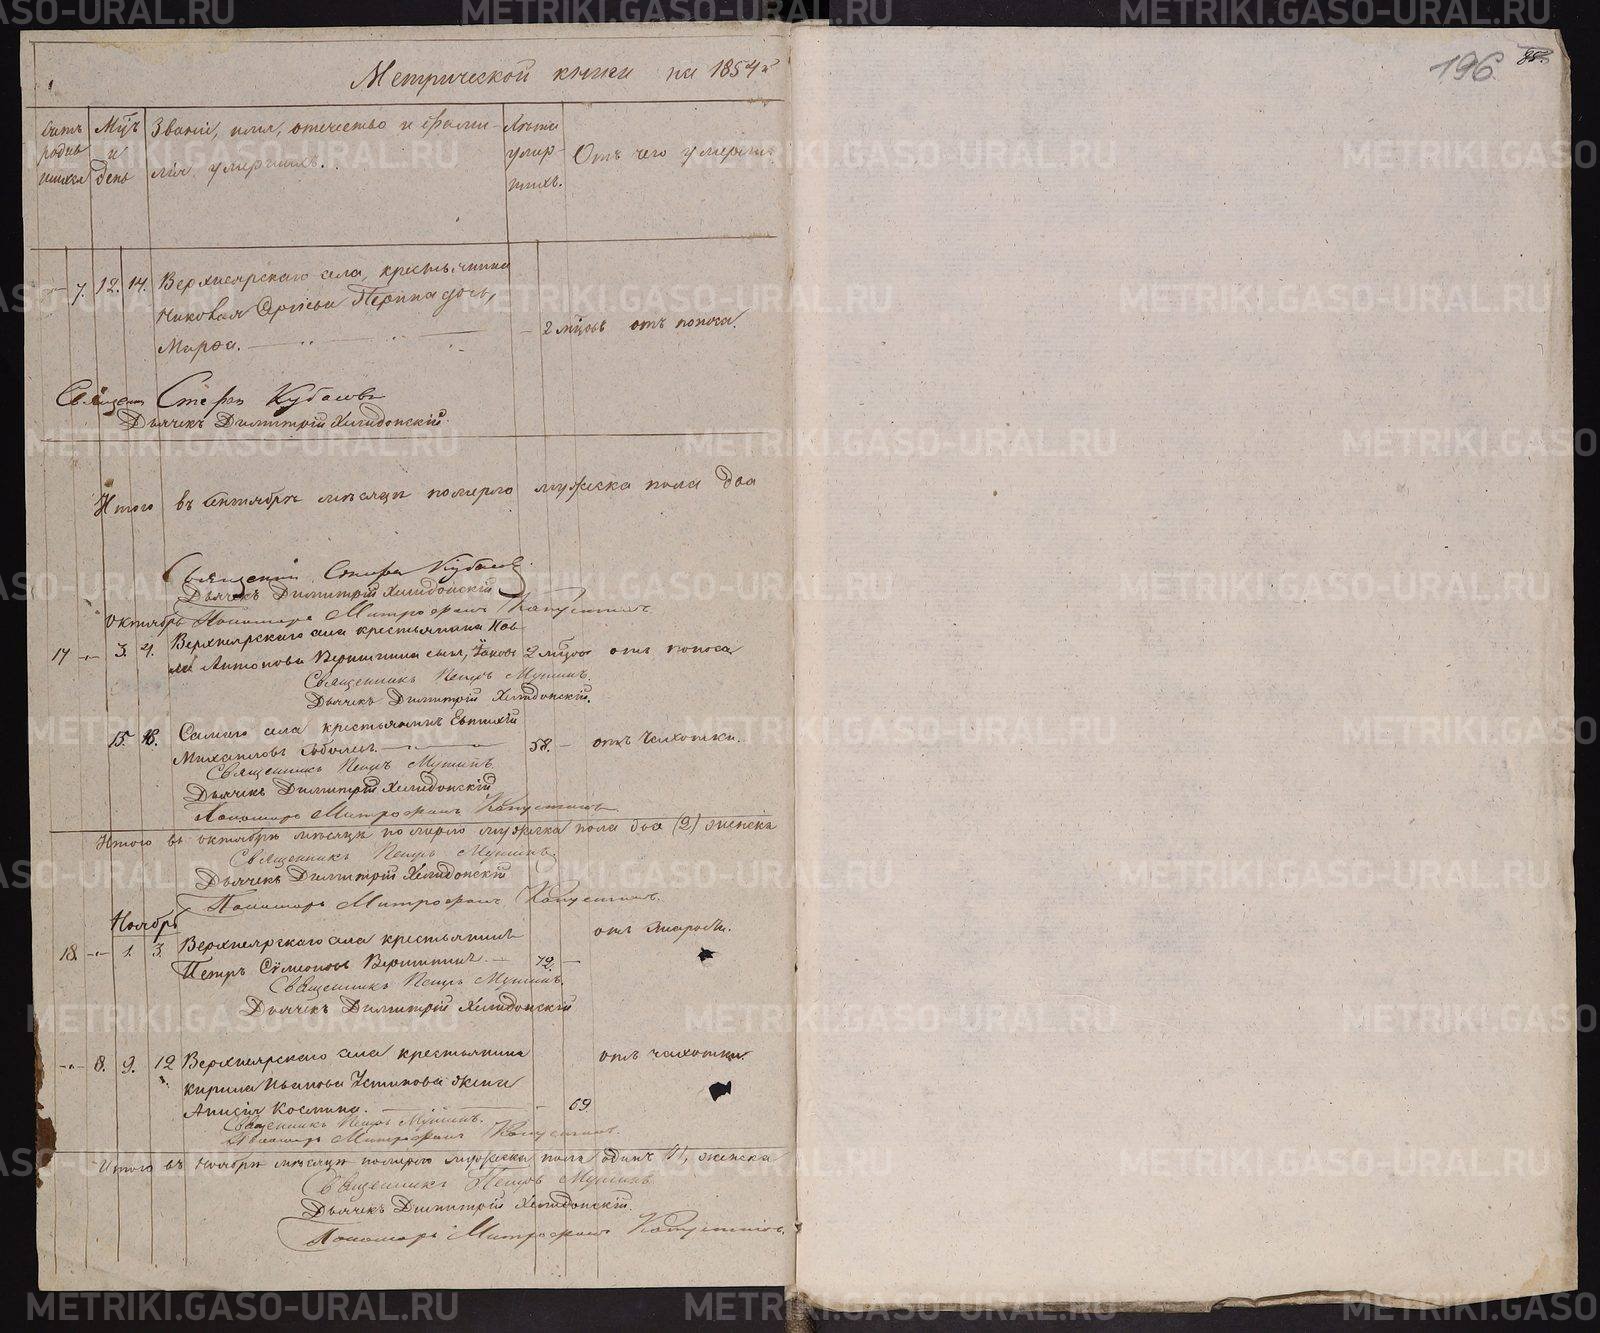 Метрической книги на 1854й
196.
Счетъ
родив
шихся
Мцъ
и
день
Званіе, имя, отечество и фами-
лія умершихъ.
Лѣта
умер-
шихъ.
Отъ чего умерли.
7. 12. 14. Верхнеярскаго села, крестьянина
дочь,
Марѳа. 2 мцовъ отъ поноса.
Стефанъ Кубасовъ
Дьячекъ Димитрій Хелидонскій.
Итого въ сентябрѣ мѣсяцѣ померло мужска пола два
Священникъ Стефанъ Кубасовъ
Дьячекъ Димитрій Хелидонскій
Октябрь Пономарь Митрофанъ Капустинъ
17 3. 4. Верхнеярскаго села крестьянина Пав
ла Антонова Вершинина сынъ, Іаковъ 2 мцовъ отъ поноса
Священникъ Петръ Мутинъ.
Дьячекъ Димитрій Хелидонскій.
15. 18. Самаго села крестьянинъ Евтихій
Михаиловъ 58. отъ чахотки.
Священникъ Петръ Мутинъ.
Дьячекъ Димитрій Хелидонскій
Пономарь Митрофанъ Капустинъ
Итого въ октябрѣ мѣсяцѣ померло мужска пола два (2) женска
Священникъ Петръ Мутинъ.
Дьячекъ Димитрій Хелидонскій
Пономарь Митрофанъ Капустинъ.
Ноябрь
18. 1. 3. Верхнеярскаго села крестьянинъ отъ старости.
Петръ Сѵмеоновъ Вершининъ. 72.
Священникъ Петръ Мутинъ.
Дьячекъ Димитрій Хелидонскій
8. 9. 12 Верхнеярскаго села крестьянина отъ чахотки.
Кирила Иванова Устинова жена
Анисія Космина. 69
Священникъ Петръ Мутинъ.
Пономарь Митрофанъ Капустинъ.
Итого въ ноябрѣ мѣсяцѣ померло мужска пола одинъ женска
Священникъ Петръ Мутинъ
Дьячекъ Димитрій Хелидонскій.
Пономарь Митрофанъ Капустинъ.
METRIKI.GASO-URAL.RU